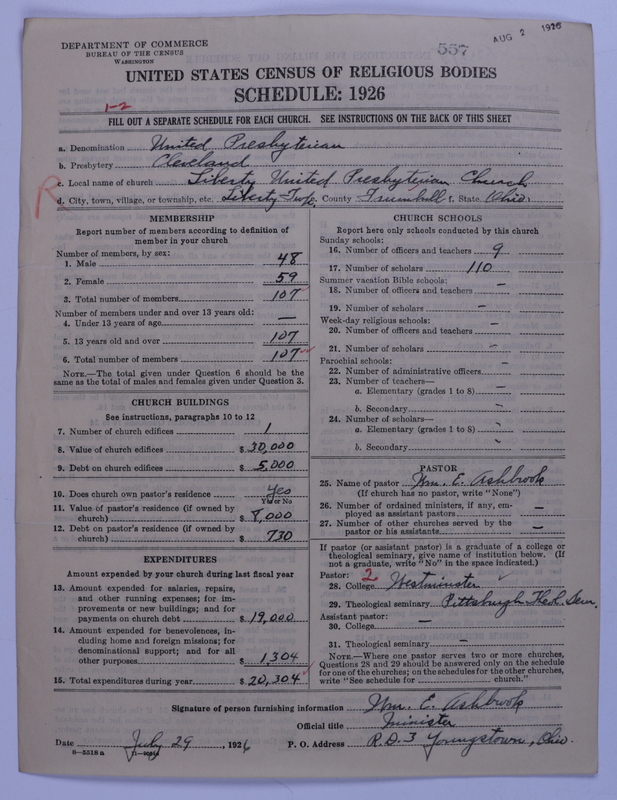 557
AUG 2 1926
DEPARTMENT OF COMMERCE
BUREAU OF THE CENSUS
WASHINGTON
UNITED STATES CENSUS OF RELIGIOUS BODIES
SCHEDULE: 1926
1-2
FILL OUT A SEPARATE SCHEDULE FOR EACH CHURCH. SEE INSTRUCTIONS ON THE BACK OF THIS SHEET
a. Denomination United Presbyterian
b. Presbytery Cleveland
c. Local name of church Liberty United Presbyterian Church
R
d. City, town, village, or township, etc. Liberty Twp. County Trumbull f. State Ohio
MEMBERSHIP
Report number of members according to definition of
member in your church
Number of members, by sex:
1. Male 48
2. Female 59
3. Total number of members 107
Number of members under and over 13 years old:
4. Under 13 years of age —
5. 13 years old and over 107
6. Total number of members 107
NOTE.—The total given under Question 6 should be the
same as the total of males and females given under Question 3.
CHURCH BUILDINGS
See instructions, paragraphs 10 to 12
7. Number of church edifices 1
8. Value of church edifices $ 30,000
9. Debt on church edifices $ 5,000
10. Does church own pastor's residence Yes
Yes or No
11. Value of pastor's residence (if owned by
church) $ 8,000
12. Debt on pastor's residence (if owned by
church) $ 730
EXPENDITURES
Amount expended by your church during last fiscal year
13. Amount expended for salaries, repairs,
and other running expenses; for im-
provements or new buildings; and for
payments on church debt $ 19,000
14. Amount expended for benevolences, in-
cluding home and foreign missions; for
denominational support; and for all
other purposes $ 1,304
15. Total expenditures during year $ 20,304
CHURCH SCHOOLS
Report here only schools conducted by this church
Sunday schools:
16. Number of officers and teachers 9
17. Number of scholars 110
Summer vacation Bible schools:
18. Number of officers and teachers —
19. Number of scholars —
Week-day religious schools:
20. Number of officers and teachers —
21. Number of scholars —
Parochial schools:
22. Number of administrative officers —
23. Number of teachers—
a. Elementary (grades 1 to 8) —
b. Secondary —
24. Number of scholars—
a. Elementary (grades 1 to 8) —
b. Secondary —
PASTOR
25. Name of pastor Wm. E. Ashbrook
(If church has no pastor, write "None")
26. Number of ordained ministers, if any, em-
ployed as assistant pastors —
27. Number of other churches served by the
pastor or his assistants —
If pastor (or assistant pastor) is a graduate of a college or
theological seminary, give name of institution below. (If
not a graduate, write "No" in the space indicated.)
Pastor: 2
28. College Westminster
29. Theological seminary Pittsburgh Theol. Sem.
Assistant pastor:
30. College —
31. Theological seminary —
NOTE.—Where one pastor serves two or more churches,
Questions 28 and 29 should be answered only on the schedule
for one of the churches; on the schedules for the other churches,
write "See schedule for church."
Signature of person furnishing information Wm. E. Ashbrook
Official title Minister
Date July 29, 1926 P. O. Address R.D. 3 Youngstown, Ohio.
8—5318 a